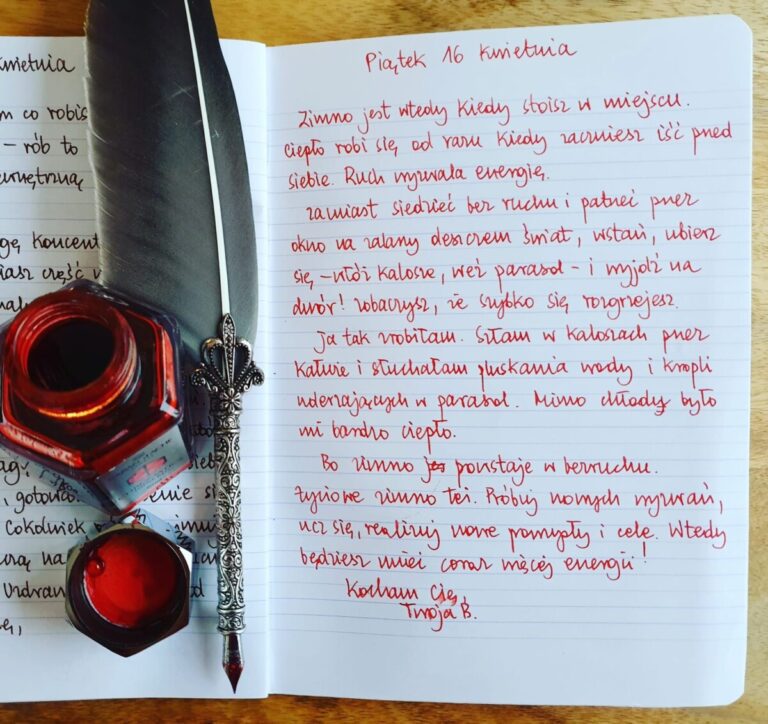 kwietnia
m co robis
– rób to
ewnętrzną
gę koncent
iasz część
Piątek 16 kwietnia
Zimno jest wtedy kiedy stoisz w miejscu.
ciepło robi się od razu kiedy zaczniesz iść przed
siebie. Ruch wyzwala energię.
zamiast siedzieć bez ruchu i patrzeć przez
okno na zalany deszczem świat, wstań, ubierz
się, – włóż kalosze, weź parasol – i wyjdź na
dwór! zobaczysz, że szybko się rozgrzejesz.
Ja tak zrobiłam. Szłam w kaloszach przez
kałuże i słuchałam pluskania wody i kropli
uderzających w parasol. Mimo chłody było
mi bardzo ciepło.
Bo zimno powstaje w bezruchu.
Życiowe zimno też. Próbuj nowych wyzwań,
ucz się, realizuj nowe pomysły i cele. Wtedy
będziesz mieć coraz więcej energii!
Kocham Cię,
Twoja B.